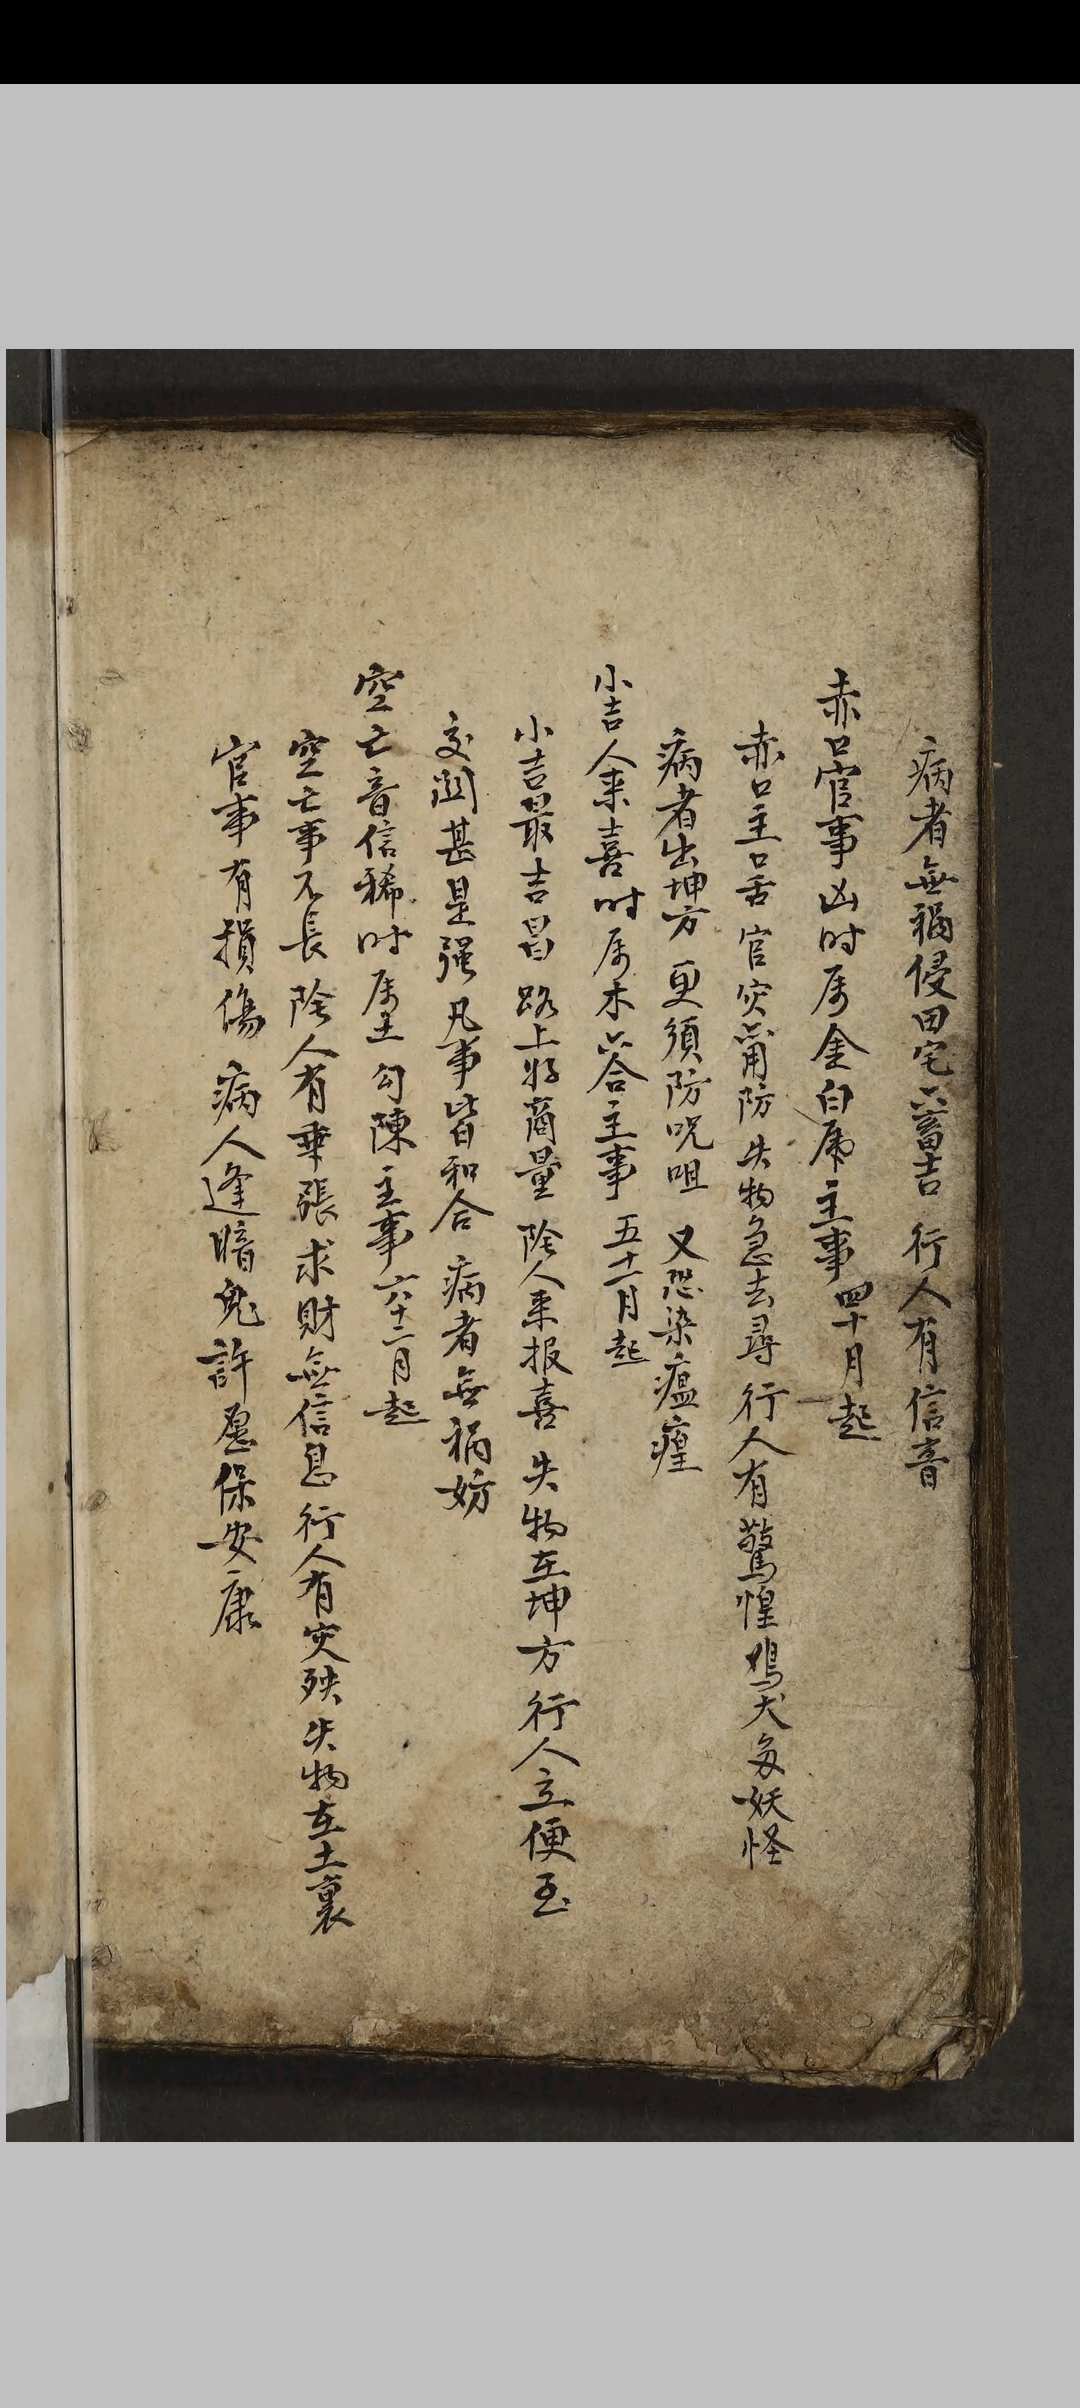 病者無禍侵田宅六畜吉 行人有信音
赤口官事凶时属金白虎主事四十月起
赤口主口舌官灾切用防失物急去尋 行人有驚惶鸡犬多妖怪
病者出坤方 更須防呪咀 又恐染瘟瘟
小吉人来喜时属木六合主事 五十一月起
小吉最吉昌路上好商量 陰人来报喜 失物在坤方 行人立便至
交関甚是强凡事皆和合 病者無祸妨
空亡音信稀时属土勾陳主事六十二月起
空亡事不長 陰人有乖張求財無信息行人有灾殃失物在土裏
官事有損傷 病人逢暗鬼許愿保安康